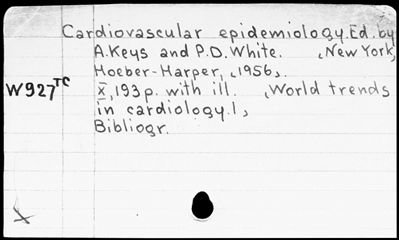 Cardiovascular epidemiology. Ed. by
A. Keys and P. D. White. , New York,
Hoeber-Harper, , 1956,.
W927 TC
X, 193 p. with ill. , World trends
in cardiology. 1,
Bibliogr.